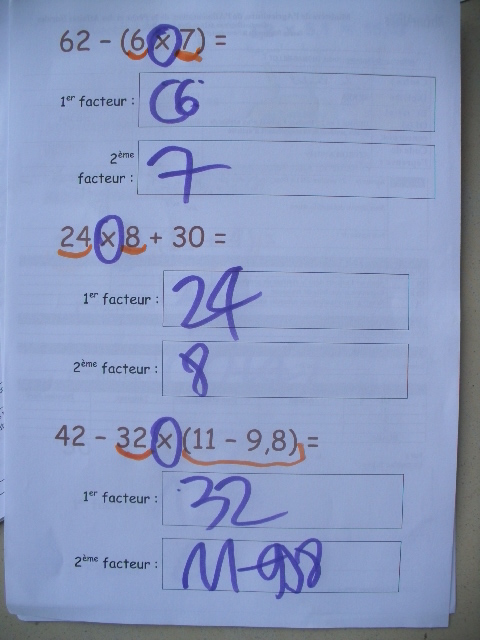 62 - (6 x 7) =
1er facteur : 6
2ème
facteur : 7
24 x 8 + 30 =
1er facteur : 24
2ème facteur : 8
42 - 32 x (11 - 9,8) =
1er facteur : 32
2ème facteur : 11-9,8